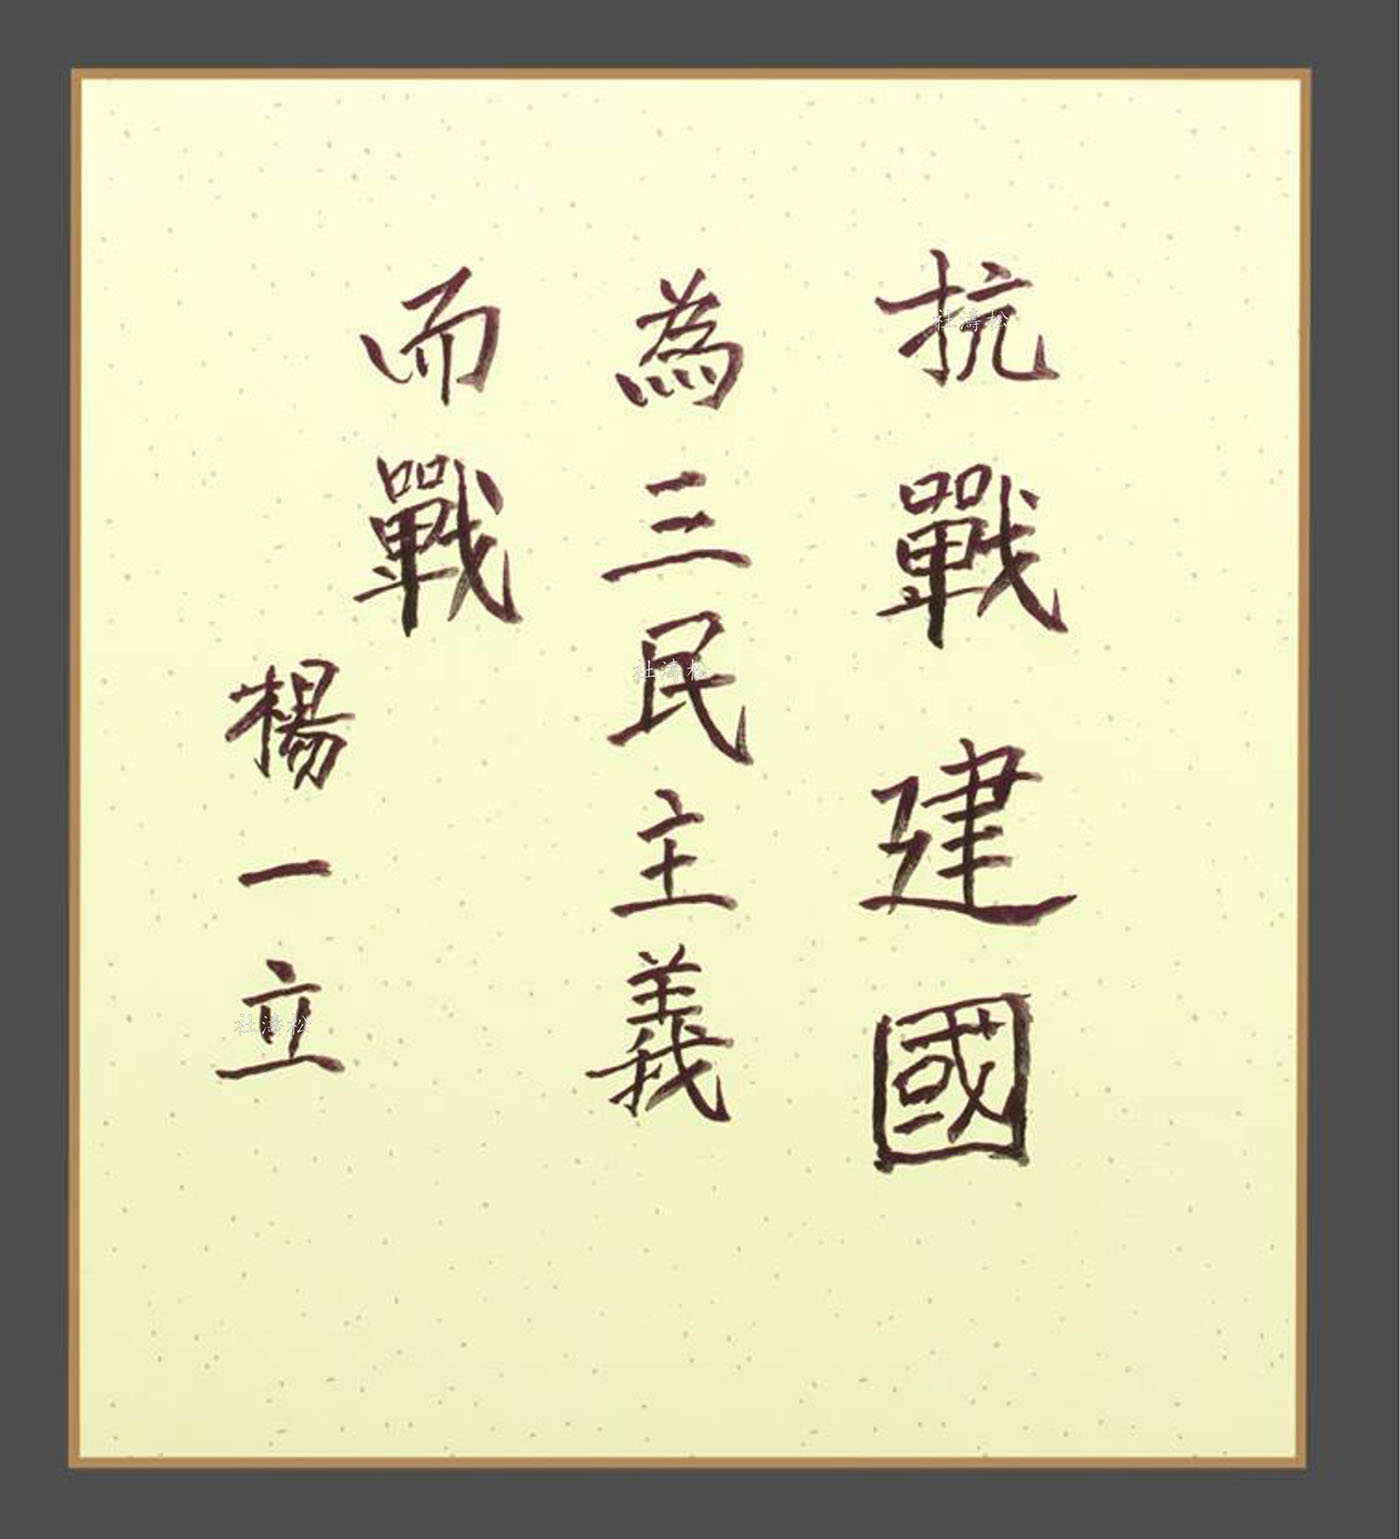 抗戰建國
為三民主義
而戰
楊一立
杜濤松
杜濤松
杜濤松